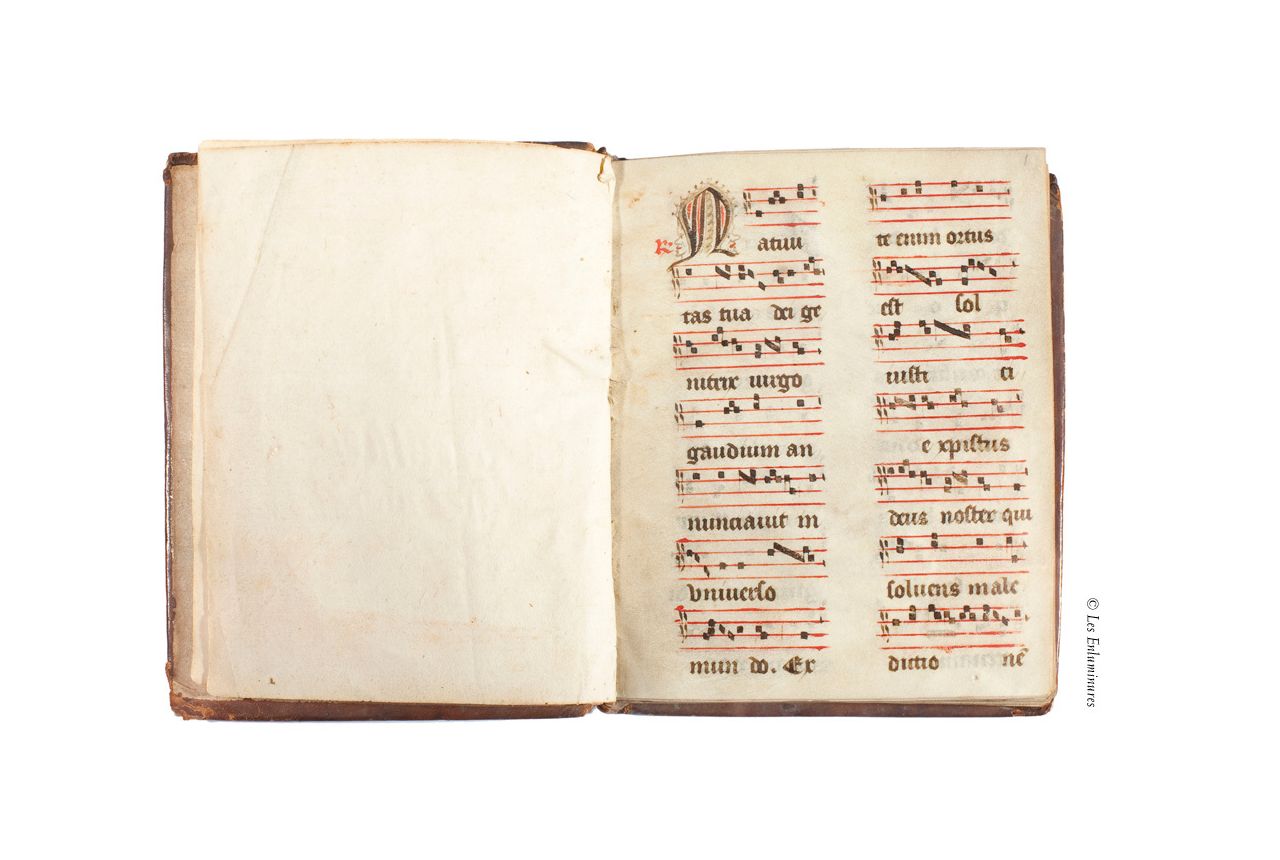 1
R. Natiui
tas tua dei ge
nitrix uirgo
gaudium an
nunciauit in
vniuerso
mun do. Ex
te enim ortus
est sol
iusti ci
e xpistus
deus noster qui
soluens male
dictio nē
© Les Enluminures